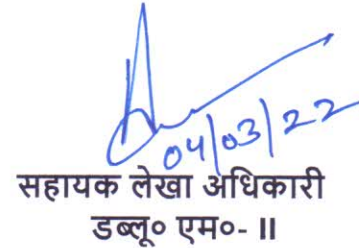 04/03/22
सहायक लेखा अधिकारी
डब्लू० एम०- II